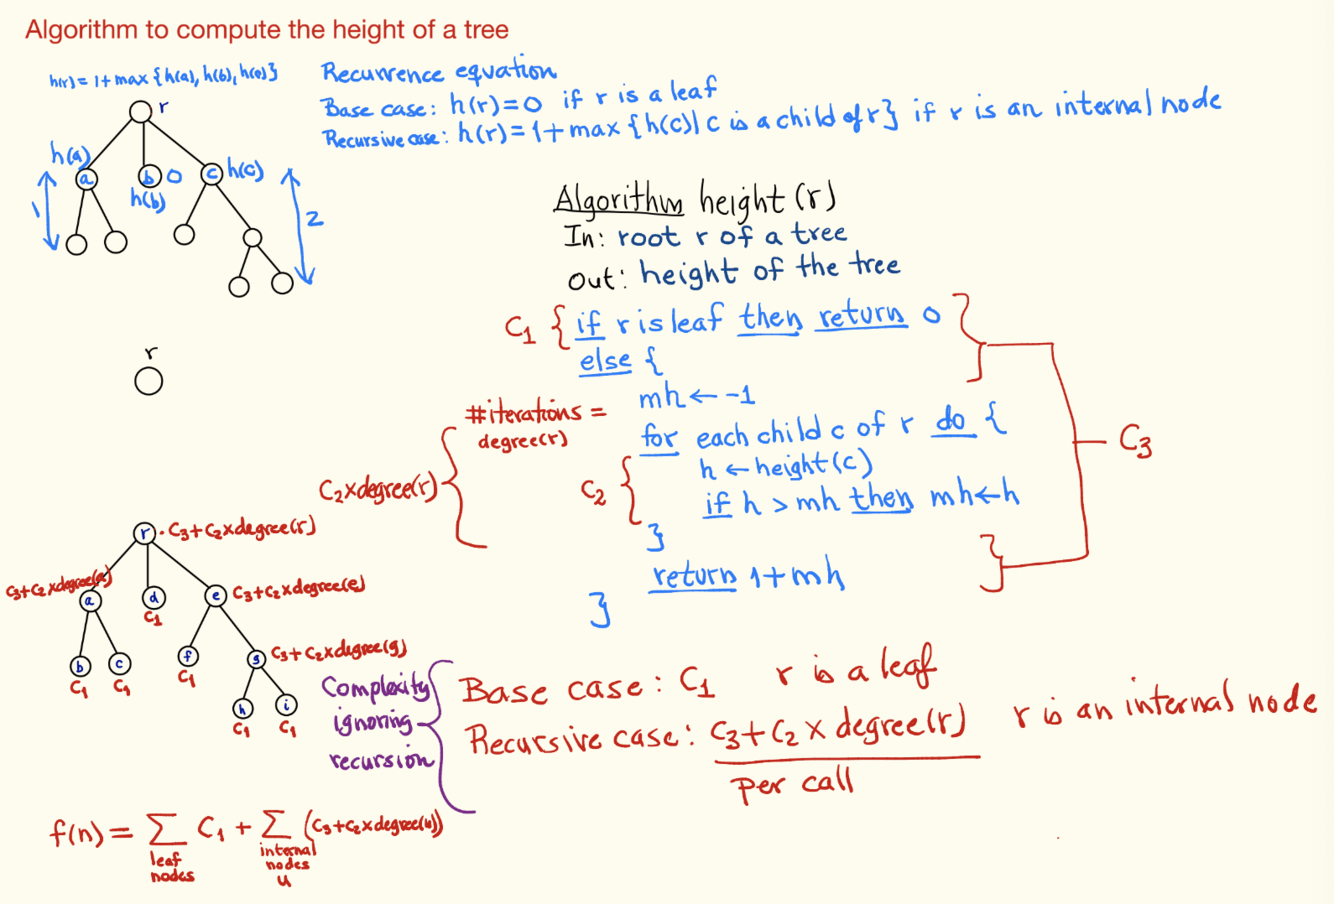 Algorithm to compute the height of a tree
h(r) = 1 + max {h(a), h(b), h(c)}
r
h(a)
a
b
0
h(b)
c
h(c)
1
2
Recurrence equation
Base case: h(r) = 0 if r is a leaf
Recursive case: h(r) = 1 + max {h(c) | c is a child of r} if r is an internal node
Algorithm height (r)
In: root r of a tree
Out: height of the tree
C1 { if r is leaf then return 0 }
else {
mh ← -1
for each child c of r do {
h ← height(c)
if h > mh then mh ← h
}
return 1 + mh
}
#iterations =
degree(r)
C2 x degree(r) {
C2 {
} C3
r
r · C3 + C2 x degree(r)
C3 + C2 x degree(a)
a
d
C1
e C3 + C2 x degree(e)
b
C1
c
C1
f
C1
g C3 + C2 x degree(g)
h
C1
i
C1
Complexity
ignoring
recursion
Base case: C1 r is a leaf
Recursive case: C3 + C2 x degree(r) r is an internal node
per call
f(n) = ∑ C1 + ∑ (C3 + C2 x degree(u))
leaf
nodes
internal
nodes
u